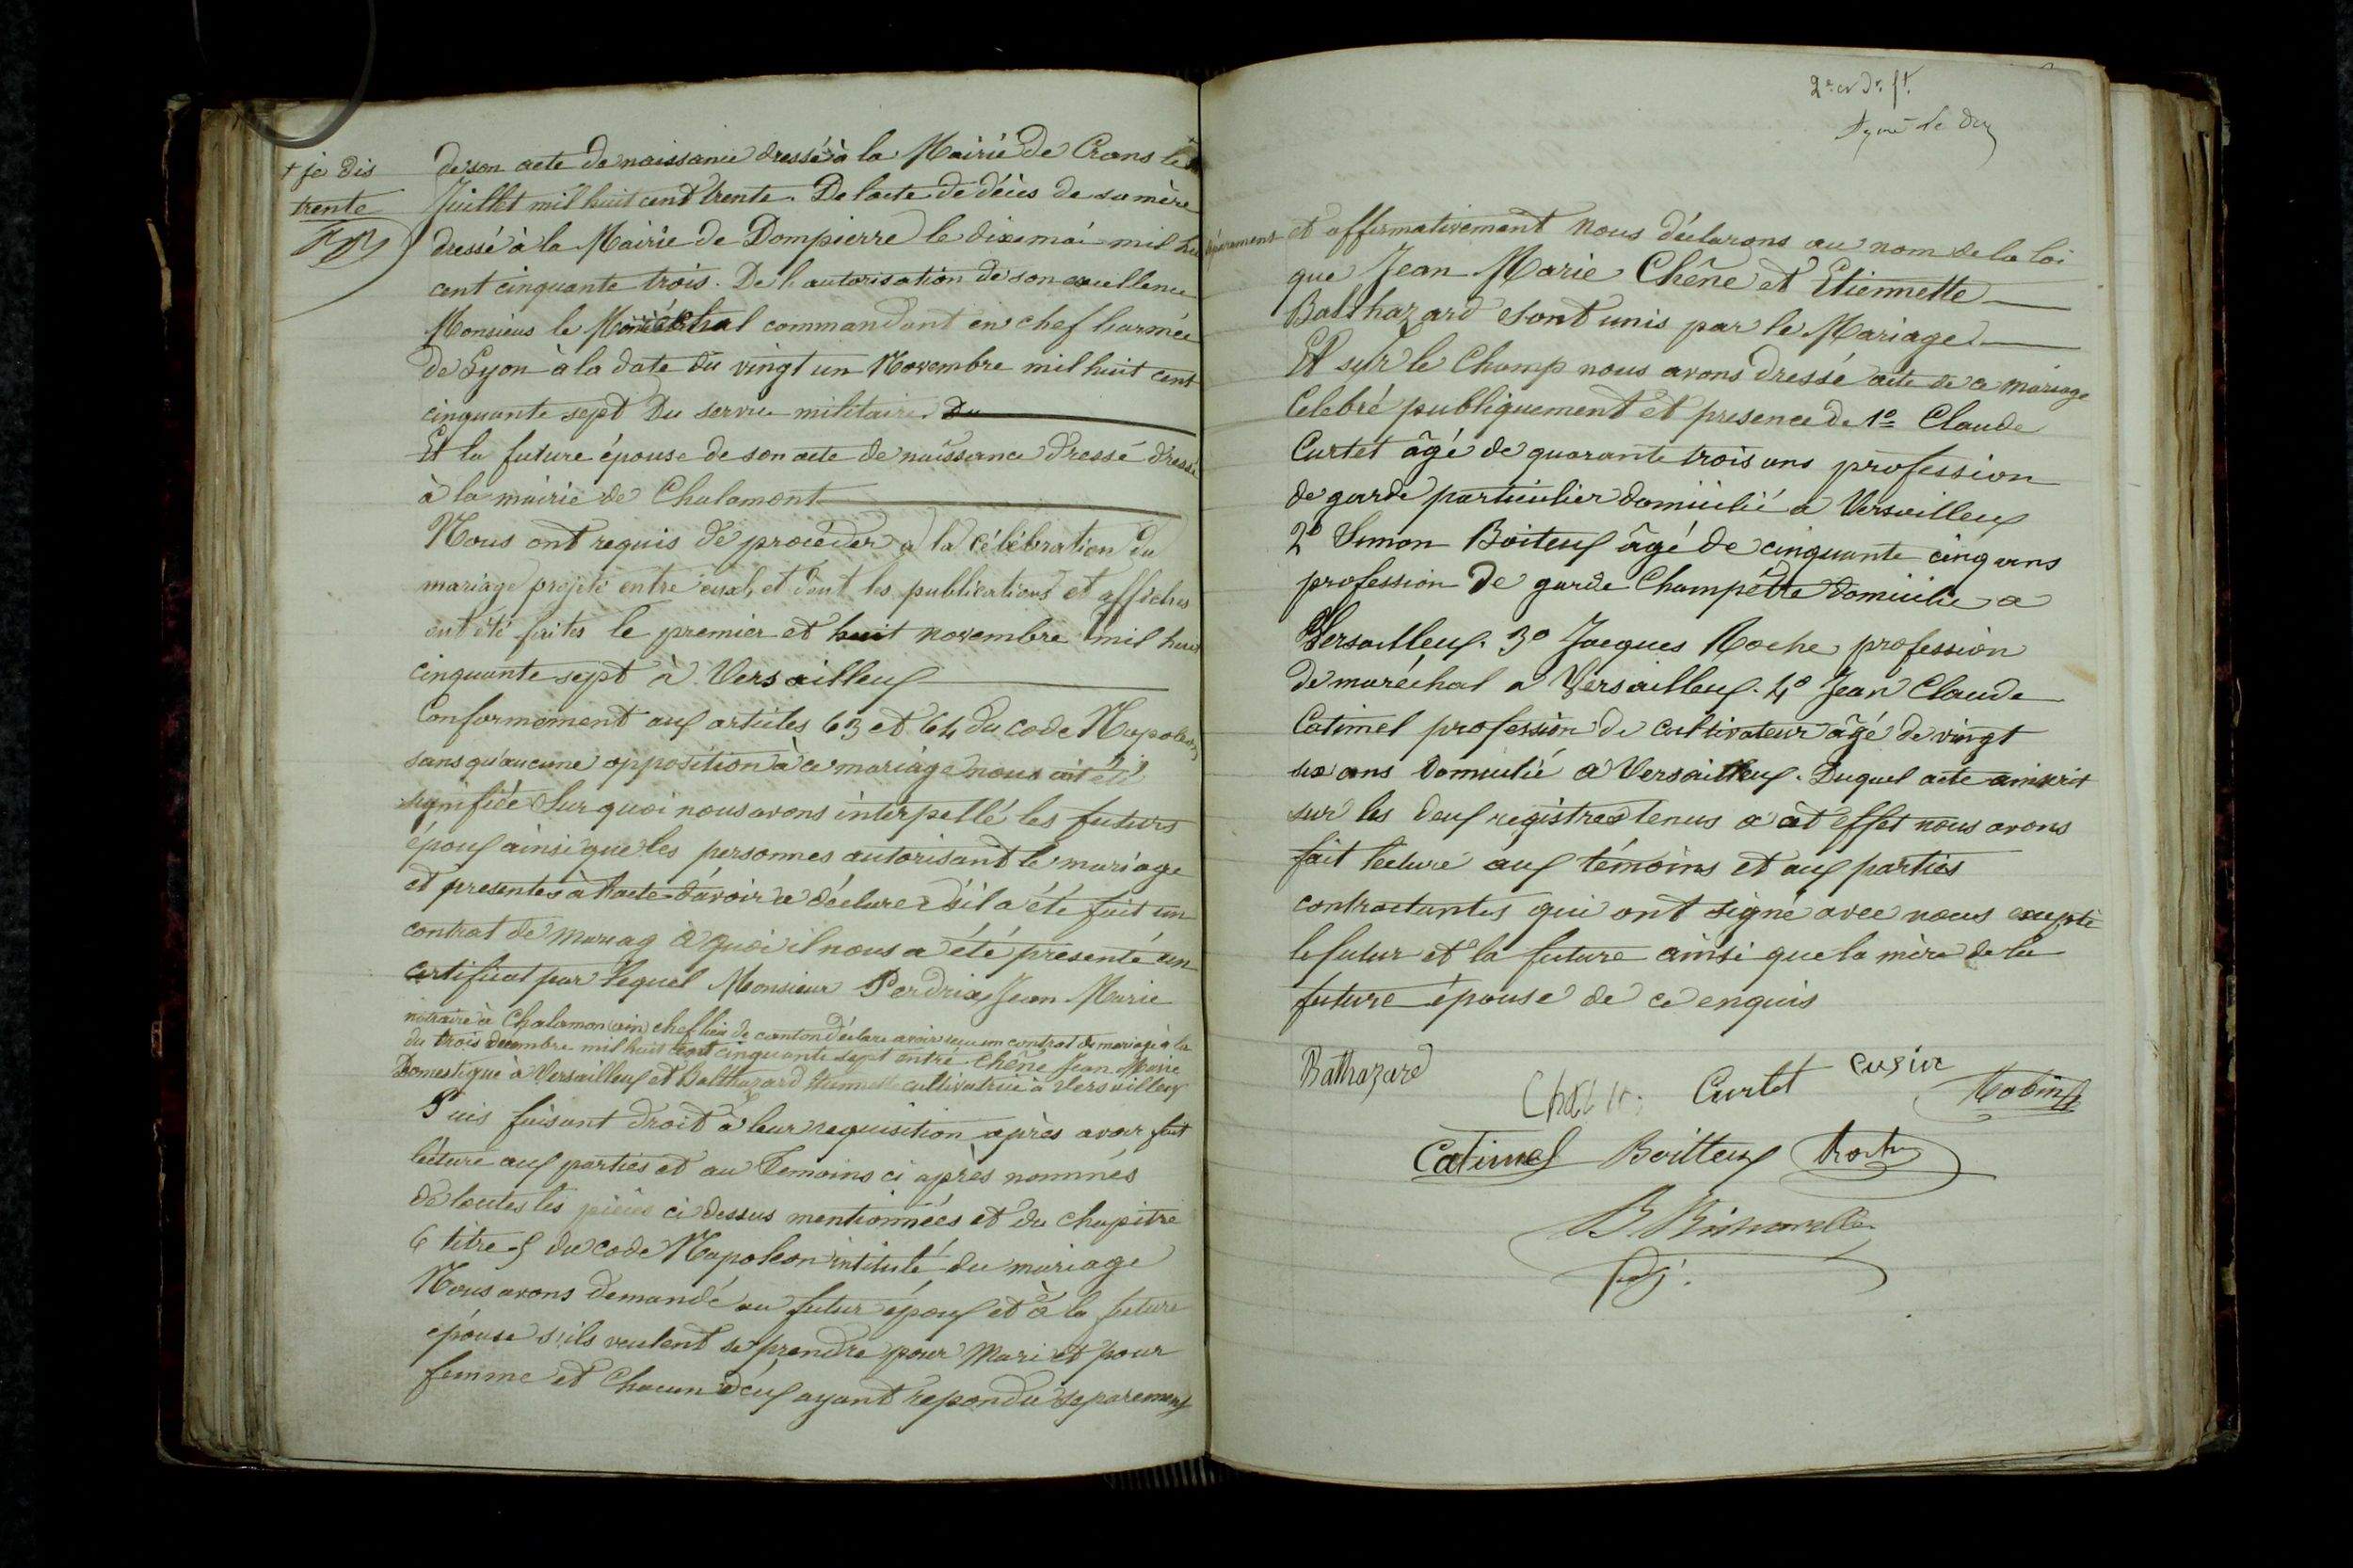 + je dis
trente
de son acte de naissance dressé à la Mairie de Crans le
Juillet mil huit cent trente. De l'acte de décès de sa mère
dressé à la Mairie de Dompierre le dix mai mil hui
cent cinquante trois. De l'autorisation de son excellence
Monsieur le Maréchal commandant en chef l'armée
de Lyon à la date du vingt un Novembre mil huit cent
cinquante sept Du service militaire. Du
Et la future épouse de son acte de naissance dressé dressé
à la mairie de Chalamont
Nous ont requis de procéder à la célébration du
mariage projeté entre eux, et dont les publications et affiches
ont été faites le premier et huit novembre mil huit
cinquante sept à Versailleux
Conformement aux articles 63 et 64 du code Napoleon
sans qu'aucune opposition à ce mariage nous ait été
signifiée Sur quoi nous avons interpellé les futurs
époux ainsi que les personnes autorisant le mariage
et presentes à l'acte d'avoir à déclarer s'il a été fait un
contrat de mariag à quoi il nous a été présenté un
certificat par lequel Monsieur Perdrix Jean Marie
notraire à Chalamon (ain) chef lieu de canton déclare avoir reçu un contrat de mariage à la
du trois decembre mil huit cent cinquante sept entre Chêne Jean Marie
Domestique à Versailleux et Balthazard Etiennette cultivatrice à Versailleux
Puis faisant droit à leur requisition après avoir fait
lecture aux parties et au Temoins ci après nommés
de toutes les pièces ci dessus mentionnées et du chapitre
6 titre 5 du code Napoleon intitulé du mariage
Nous avons demandé au futur époux et à la future
épouse s'ils veulent se prendre pour Mari et pour
femme et Chacun d'eux ayant repondu separement
2e et dr. ft.
séparement et affirmativement Nous déclarons au nom de la loi
que Jean Marie Chêne et Etiennette
Balthazard sont unis par le Mariage
Et sur le Champ nous avons dressé acte de ce mariage
Celebré publiquement et presence de 1o Claude
Curtet âgé de quarante trois ans profession
de garde particulier domicilié a Versailleux
2o Simon Boiteux âgé de cinquante cinq ans
profession de garde Champêtte domicilie a
Versailleux. 3o Jacques Roche profession
de maréchal a Versailleux. 4o Jean Claude
Catimel profession de cultivateur âgé de vingt
six ans domicilié a Versailleux. Duquel acte
sur les deux registres tenus a cet effet nous avons
fait lecture aux témoins et aux parties
contractantes qui ont signé avec nous excepté
le futur et la future ainsi que la mère de la
future épouse de ce enquis
Bathazard
Curtet
Catimel Boitteux